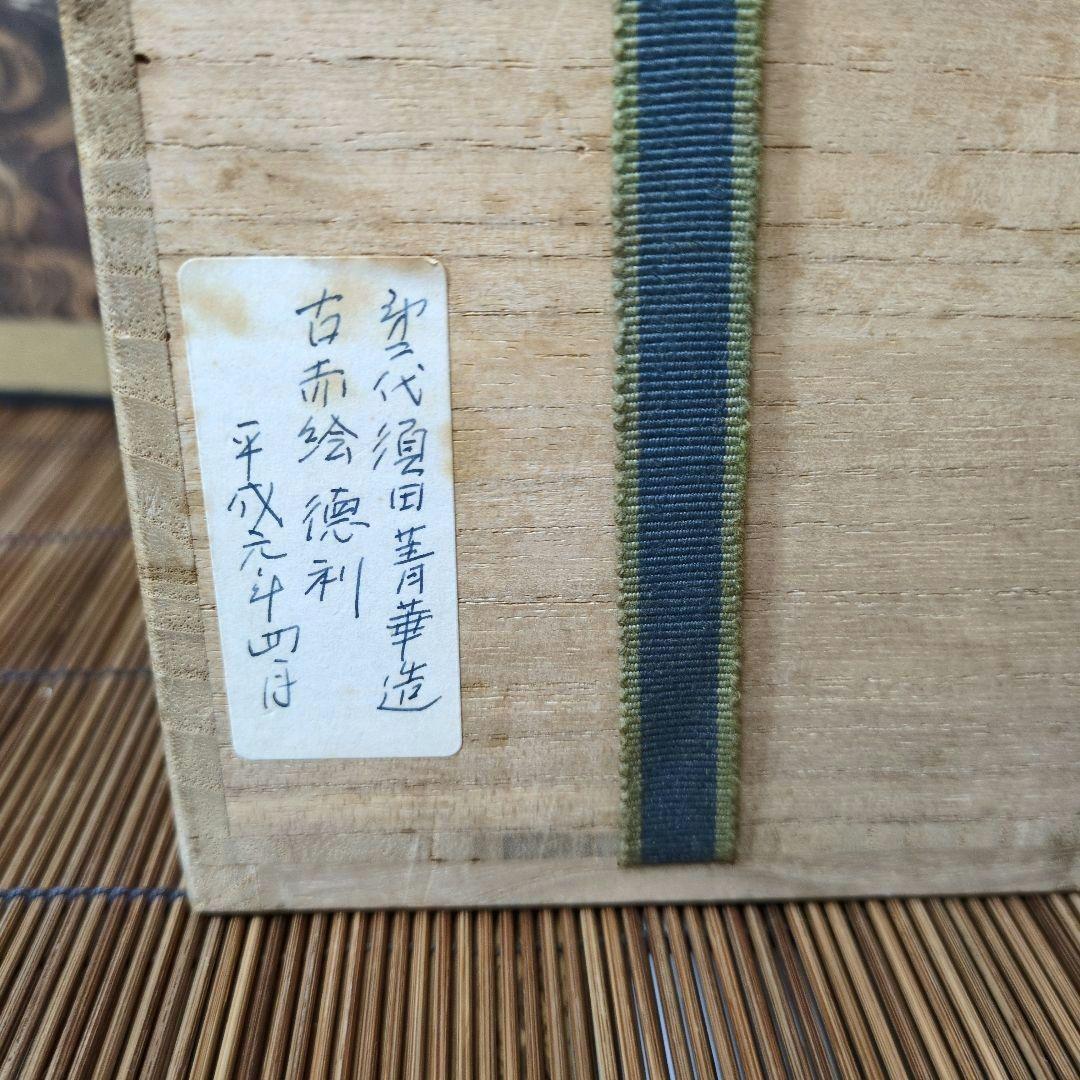 第二代須田菁華造
古赤絵 徳利
平成元年四月